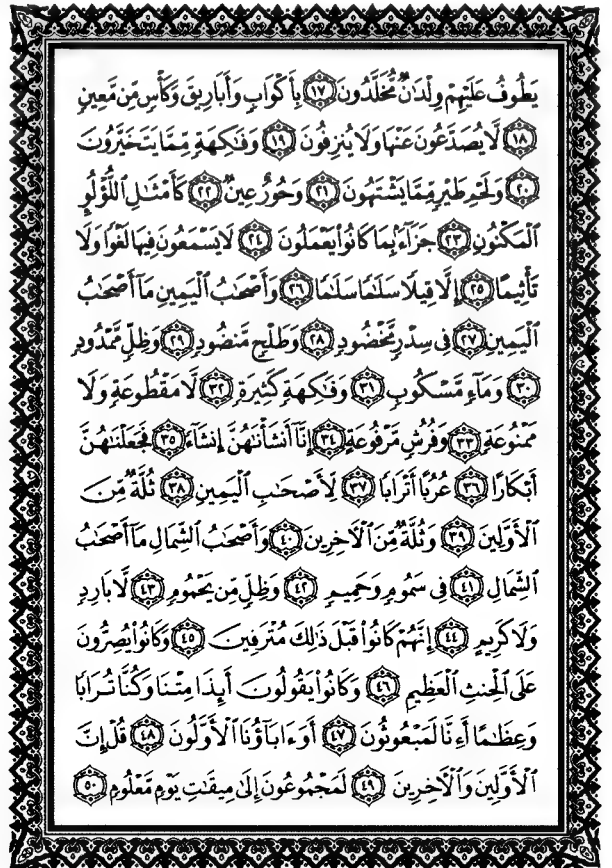 يَطُوفُ عَلَيْهِمْ وِلْدَٰنٌ مُّخَلَّدُونَ ﴿١٧﴾ بِأَكْوَابٍ وَأَبَارِيقَ وَكَأْسٍ مِّن مَّعِينٍ
﴿١٨﴾ لَّا يُصَدَّعُونَ عَنْهَا وَلَا يُنزِفُونَ ﴿١٩﴾ وَفَٰكِهَةٍ مِّمَّا يَتَخَيَّرُونَ
﴿٢٠﴾ وَلَحْمِ طَيْرٍ مِّمَّا يَشْتَهُونَ ﴿٢١﴾ وَحُورٌ عِينٌ ﴿٢٢﴾ كَأَمْثَٰلِ اللُّؤْلُوِٕ
الْمَكْنُونِ ﴿٢٣﴾ جَزَآءًۢ بِمَا كَانُوا۟ يَعْمَلُونَ ﴿٢٤﴾ لَا يَسْمَعُونَ فِيهَا لَغْوًا وَلَا
تَأْثِيمًا ﴿٢٥﴾ إِلَّا قِيلًا سَلَٰمًا سَلَٰمًا ﴿٢٦﴾ وَأَصْحَٰبُ الْيَمِينِ مَآ أَصْحَٰبُ
الْيَمِينِ ﴿٢٧﴾ فِى سِدْرٍ مَّخْضُودٍ ﴿٢٨﴾ وَطَلْحٍ مَّنضُودٍ ﴿٢٩﴾ وَظِلٍّ مَّمْدُودٍ
﴿٣٠﴾ وَمَآءٍ مَّسْكُوبٍ ﴿٣١﴾ وَفَٰكِهَةٍ كَثِيرَةٍ ﴿٣٢﴾ لَّا مَقْطُوعَةٍ وَلَا
مَمْنُوعَةٍ ﴿٣٣﴾ وَفُرُشٍ مَّرْفُوعَةٍ ﴿٣٤﴾ إِنَّآ أَنشَأْنَٰهُنَّ إِنشَآءً ﴿٣٥﴾ فَجَعَلْنَٰهُنَّ
أَبْكَارًا ﴿٣٦﴾ عُرُبًا أَتْرَابًا ﴿٣٧﴾ لِّأَصْحَٰبِ الْيَمِينِ ﴿٣٨﴾ ثُلَّةٌ مِّنَ
الْأَوَّلِينَ ﴿٣٩﴾ وَثُلَّةٌ مِّنَ الْـَٔاخِرِينَ ﴿٤٠﴾ وَأَصْحَٰبُ الشِّمَالِ مَآ أَصْحَٰبُ
الشِّمَالِ ﴿٤١﴾ فِى سَمُومٍ وَحَمِيمٍ ﴿٤٢﴾ وَظِلٍّ مِّن يَحْمُومٍ ﴿٤٣﴾ لَّا بَارِدٍ
وَلَا كَرِيمٍ ﴿٤٤﴾ إِنَّهُمْ كَانُوا۟ قَبْلَ ذَٰلِكَ مُتْرَفِينَ ﴿٤٥﴾ وَكَانُوا۟ يُصِرُّونَ
عَلَى الْحِنثِ الْعَظِيمِ ﴿٤٦﴾ وَكَانُوا۟ يَقُولُونَ أَئِذَا مِتْنَا وَكُنَّا تُرَابًا
وَعِظَٰمًا أَءِنَّا لَمَبْعُوثُونَ ﴿٤٧﴾ أَوَءَابَآؤُنَا الْأَوَّلُونَ ﴿٤٨﴾ قُلْ إِنَّ
الْأَوَّلِينَ وَالْـَٔاخِرِينَ ﴿٤٩﴾ لَمَجْمُوعُونَ إِلَىٰ مِيقَٰتِ يَوْمٍ مَّعْلُومٍ ﴿٥٠﴾